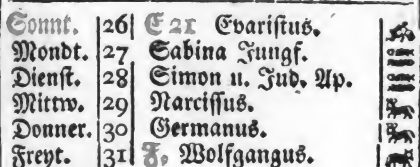 Sonnt. 26 E 21 Evaristus.
Mondt. 27 Sabina Jungf.
Dienst. 28 Simon u. Jud. Ap.
Mittw. 29 Narcissus.
Donner. 30 Germanus.
Freyt. 31 F. Wolfgangus.